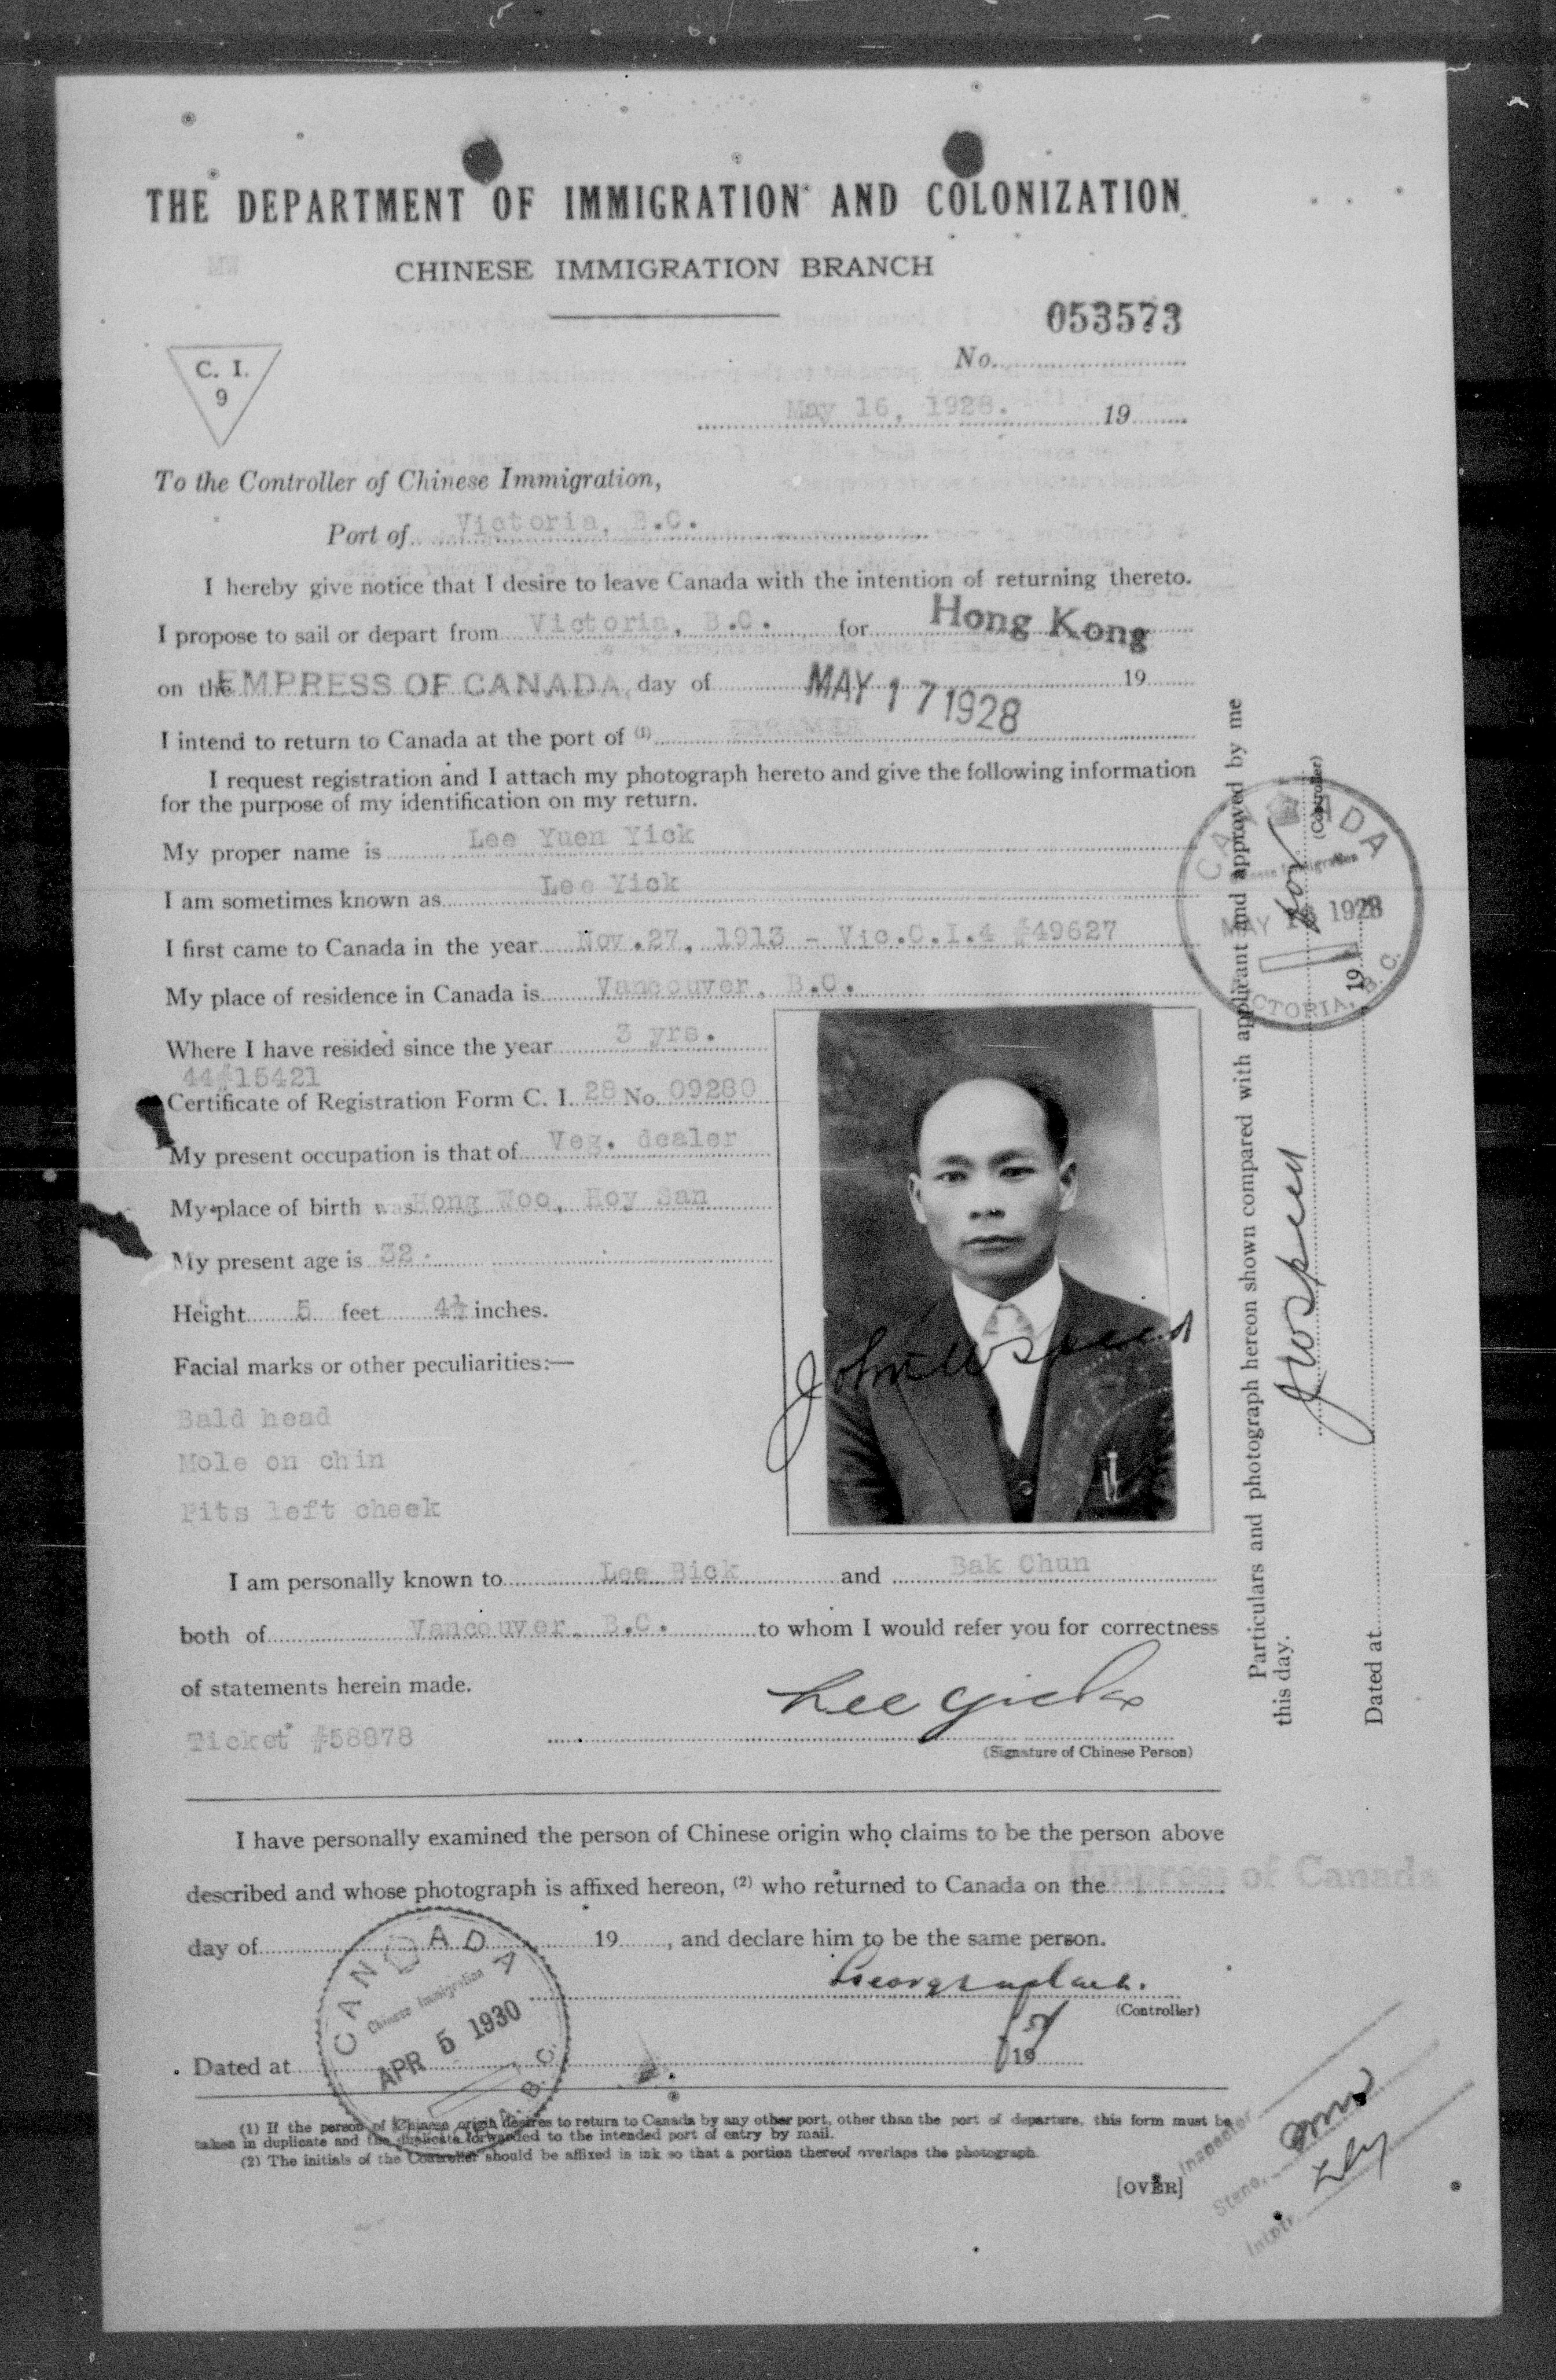 THE DEPARTMENT OF IMMIGRATION AND COLONIZATION
CHINESE IMMIGRATION BRANCH
053573
C. I.
9
No.
May 16, 1928. 19
To the Controller of Chinese Immigration,
Port of Victoria, B.C.
I hereby give notice that I desire to leave Canada with the intention of returning thereto.
I propose to sail or depart from Victoria, B.C. for Hong Kong
on the EMPRESS OF CANADA day of MAY 17 1928 19
I intend to return to Canada at the port of (1)
I request registration and I attach my photograph hereto and give the following information
for the purpose of my identification on my return.
My proper name is Lee Yuen Yick
I am sometimes known as Lee Yick
I first came to Canada in the year Nov.27, 1913 - Vic.C.I.4 #49627
My place of residence in Canada is Vancouver, B.C.
Where I have resided since the year 3 yrs.
44#15421
Certificate of Registration Form C. I. 28 No. 09280
My present occupation is that of Veg. dealer
My place of birth was Hong Woo, Hoy San
My present age is 32.
Height 5 feet 4½ inches.
Facial marks or other peculiarities:—
Bald head
Mole on chin
Pits left cheek
I am personally known to Lee Bick and Bak Chun
both of Vancouver, B.C. to whom I would refer you for correctness
of statements herein made.
Lee Yick
Ticket #58878
(Signature of Chinese Person)
I have personally examined the person of Chinese origin who claims to be the person above
described and whose photograph is affixed hereon, (2) who returned to Canada on the Empress of Canada
day of 19 , and declare him to be the same person.
(Controller)
Dated at 19
CANADA
Chinese Immigration
APR 5 1930
B.C.
(1) If the person of Chinese origin desires to return to Canada by any other port, other than the port of departure, this form must be
taken in duplicate and the duplicate forwarded to the intended port of entry by mail.
(2) The initials of the Controller should be affixed in ink so that a portion thereof overlaps the photograph.
[OVER]
Inspector
Steno.
Intptr.
Particulars and photograph hereon shown compared with applicant and approved by me
this day.
(Controller)
Dated at 19
CANADA
Chinese Immigration
MAY 1928
VICTORIA, B.C.